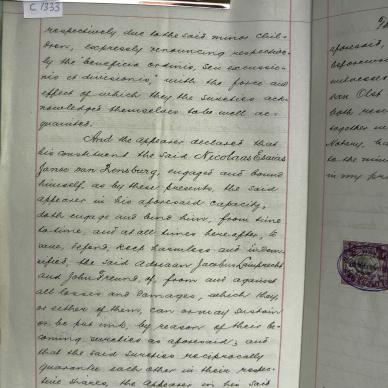 C 1333
respectively due to the said minor chil-
dren, expressly renouncing respective-
ly the "beneficia ordinis, seu excussio-
nis et divisionis," with the force and
effect of which they the sureties ack-
nowledged themselves to be well ac-
quainted.
And the appearer declared that
his constituent the said Nicolaas Esaias
Janse van Rensburg, engaged and bound
himself, as by these presents, the said
appearer in his aforesaid capacity,
doth engage and bind him, from time
to time, and at all times hereafter, to
save, defend, keep harmless and indem-
nified, the said Adriaan Jacobus Lamprecht
and John Freund, of, from and against
all losses and damages, which they,
or either of them, can or may sustain
or be put into, by reason of their be-
coming sureties as aforesaid; and
that the said sureties reciprocally
guarantee each other in their respec-
tive shares, the appearer in his said
aforesaid,
witnesses
van
both
together
Notary, ha
to the min
in my pr